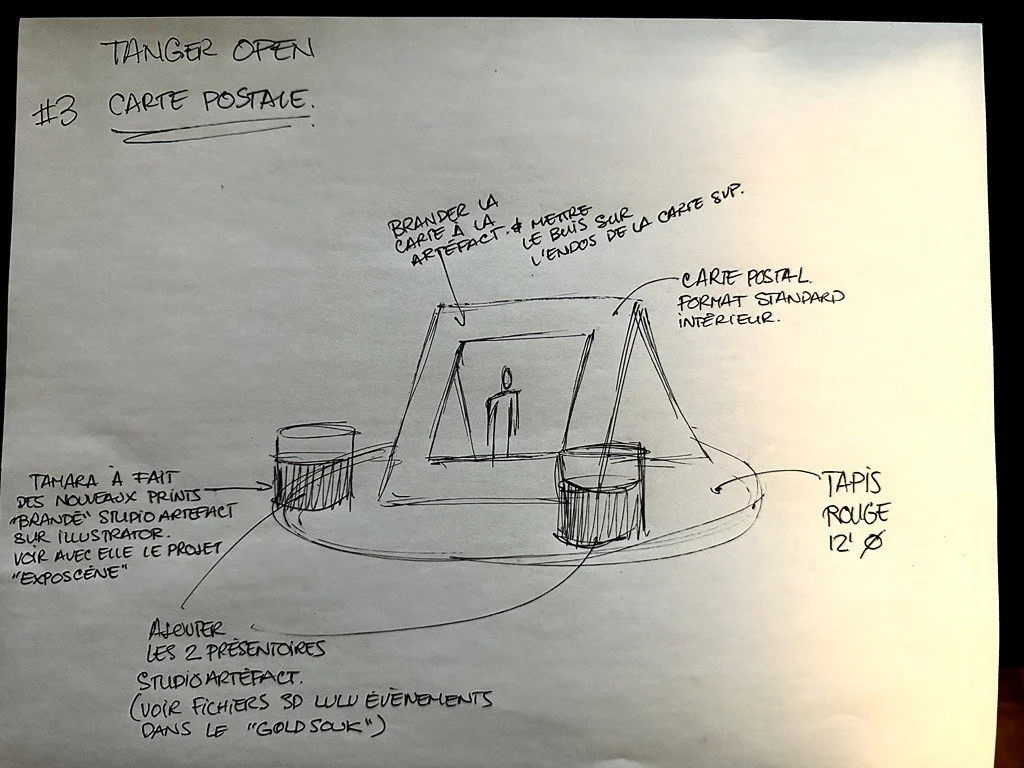 TANGER OPEN
#3 CARTE POSTALE.
BRANDER LA
CARTE À LA
ARTÉFACT.
& METTRE
LE BUIS SUR
L'ENDOS DE LA CARTE SVP.
CARTE POSTAL.
FORMAT STANDARD
INTÉRIEUR.
TAMARA À FAIT
DES NOUVEAUX PRINTS
"BRANDÉ" STUDIO ARTEFACT
SUR ILLUSTRATOR.
VOIR AVEC ELLE LE PROJET
"EXPOSCÈNE"
TAPIS
ROUGE
12' Ø
AJOUTER
LES 2 PRÉSENTOIRES
STUDIO ARTÉFACT.
(VOIR FICHIERS 3D LULU ÉVÈNEMENTS
DANS LE "GOLD SOUK")